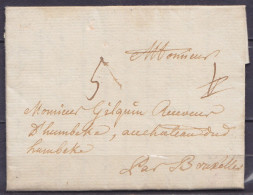 Monsieur
5
Monsieur Gilquin Receveur
D'humbeke, au chateau dud
hambeke
Par Bruxelles